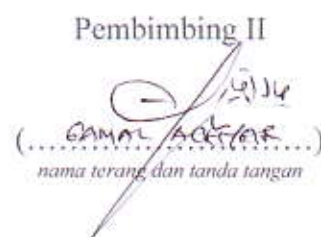 Pembimbing II
(... GAMAL ...)
nama terang dan tanda tangan